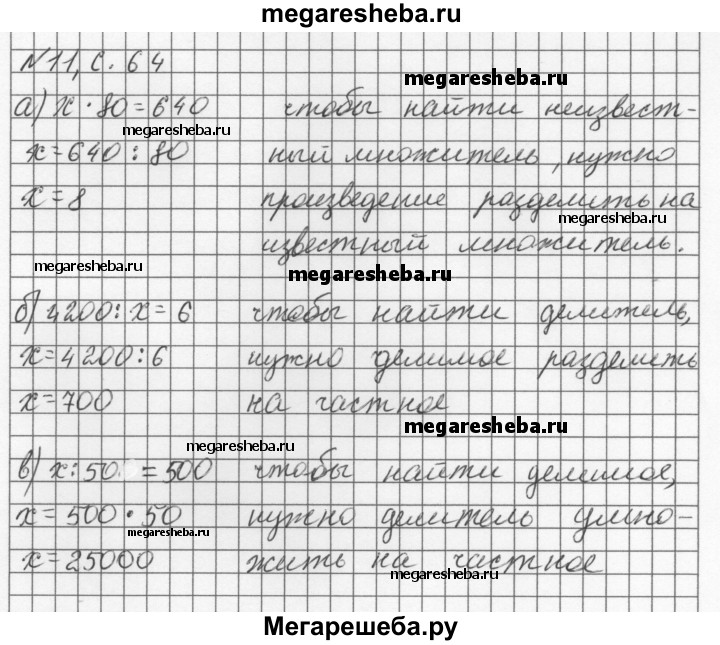 megaresheba.ru
№11, с. 64
megaresheba.ru
а) х · 80 = 640 чтобы найти неизвест-
megaresheba.ru
х = 640 : 80 ный множитель, нужно
х = 8 произведение разделить на
megaresheba.ru
известный множитель.
megaresheba.ru
megaresheba.ru
б) 4200 : х = 6 чтобы найти делитель,
х = 4200 : 6 нужно делимое разделить
х = 700 на частное
megaresheba.ru
megaresheba.ru
в) х : 50 = 500 чтобы найти делимое,
х = 500 · 50 нужно делитель умно-
megaresheba.ru
х = 25000 жить на частное
megaresheba.ru
Мегарешеба.ру